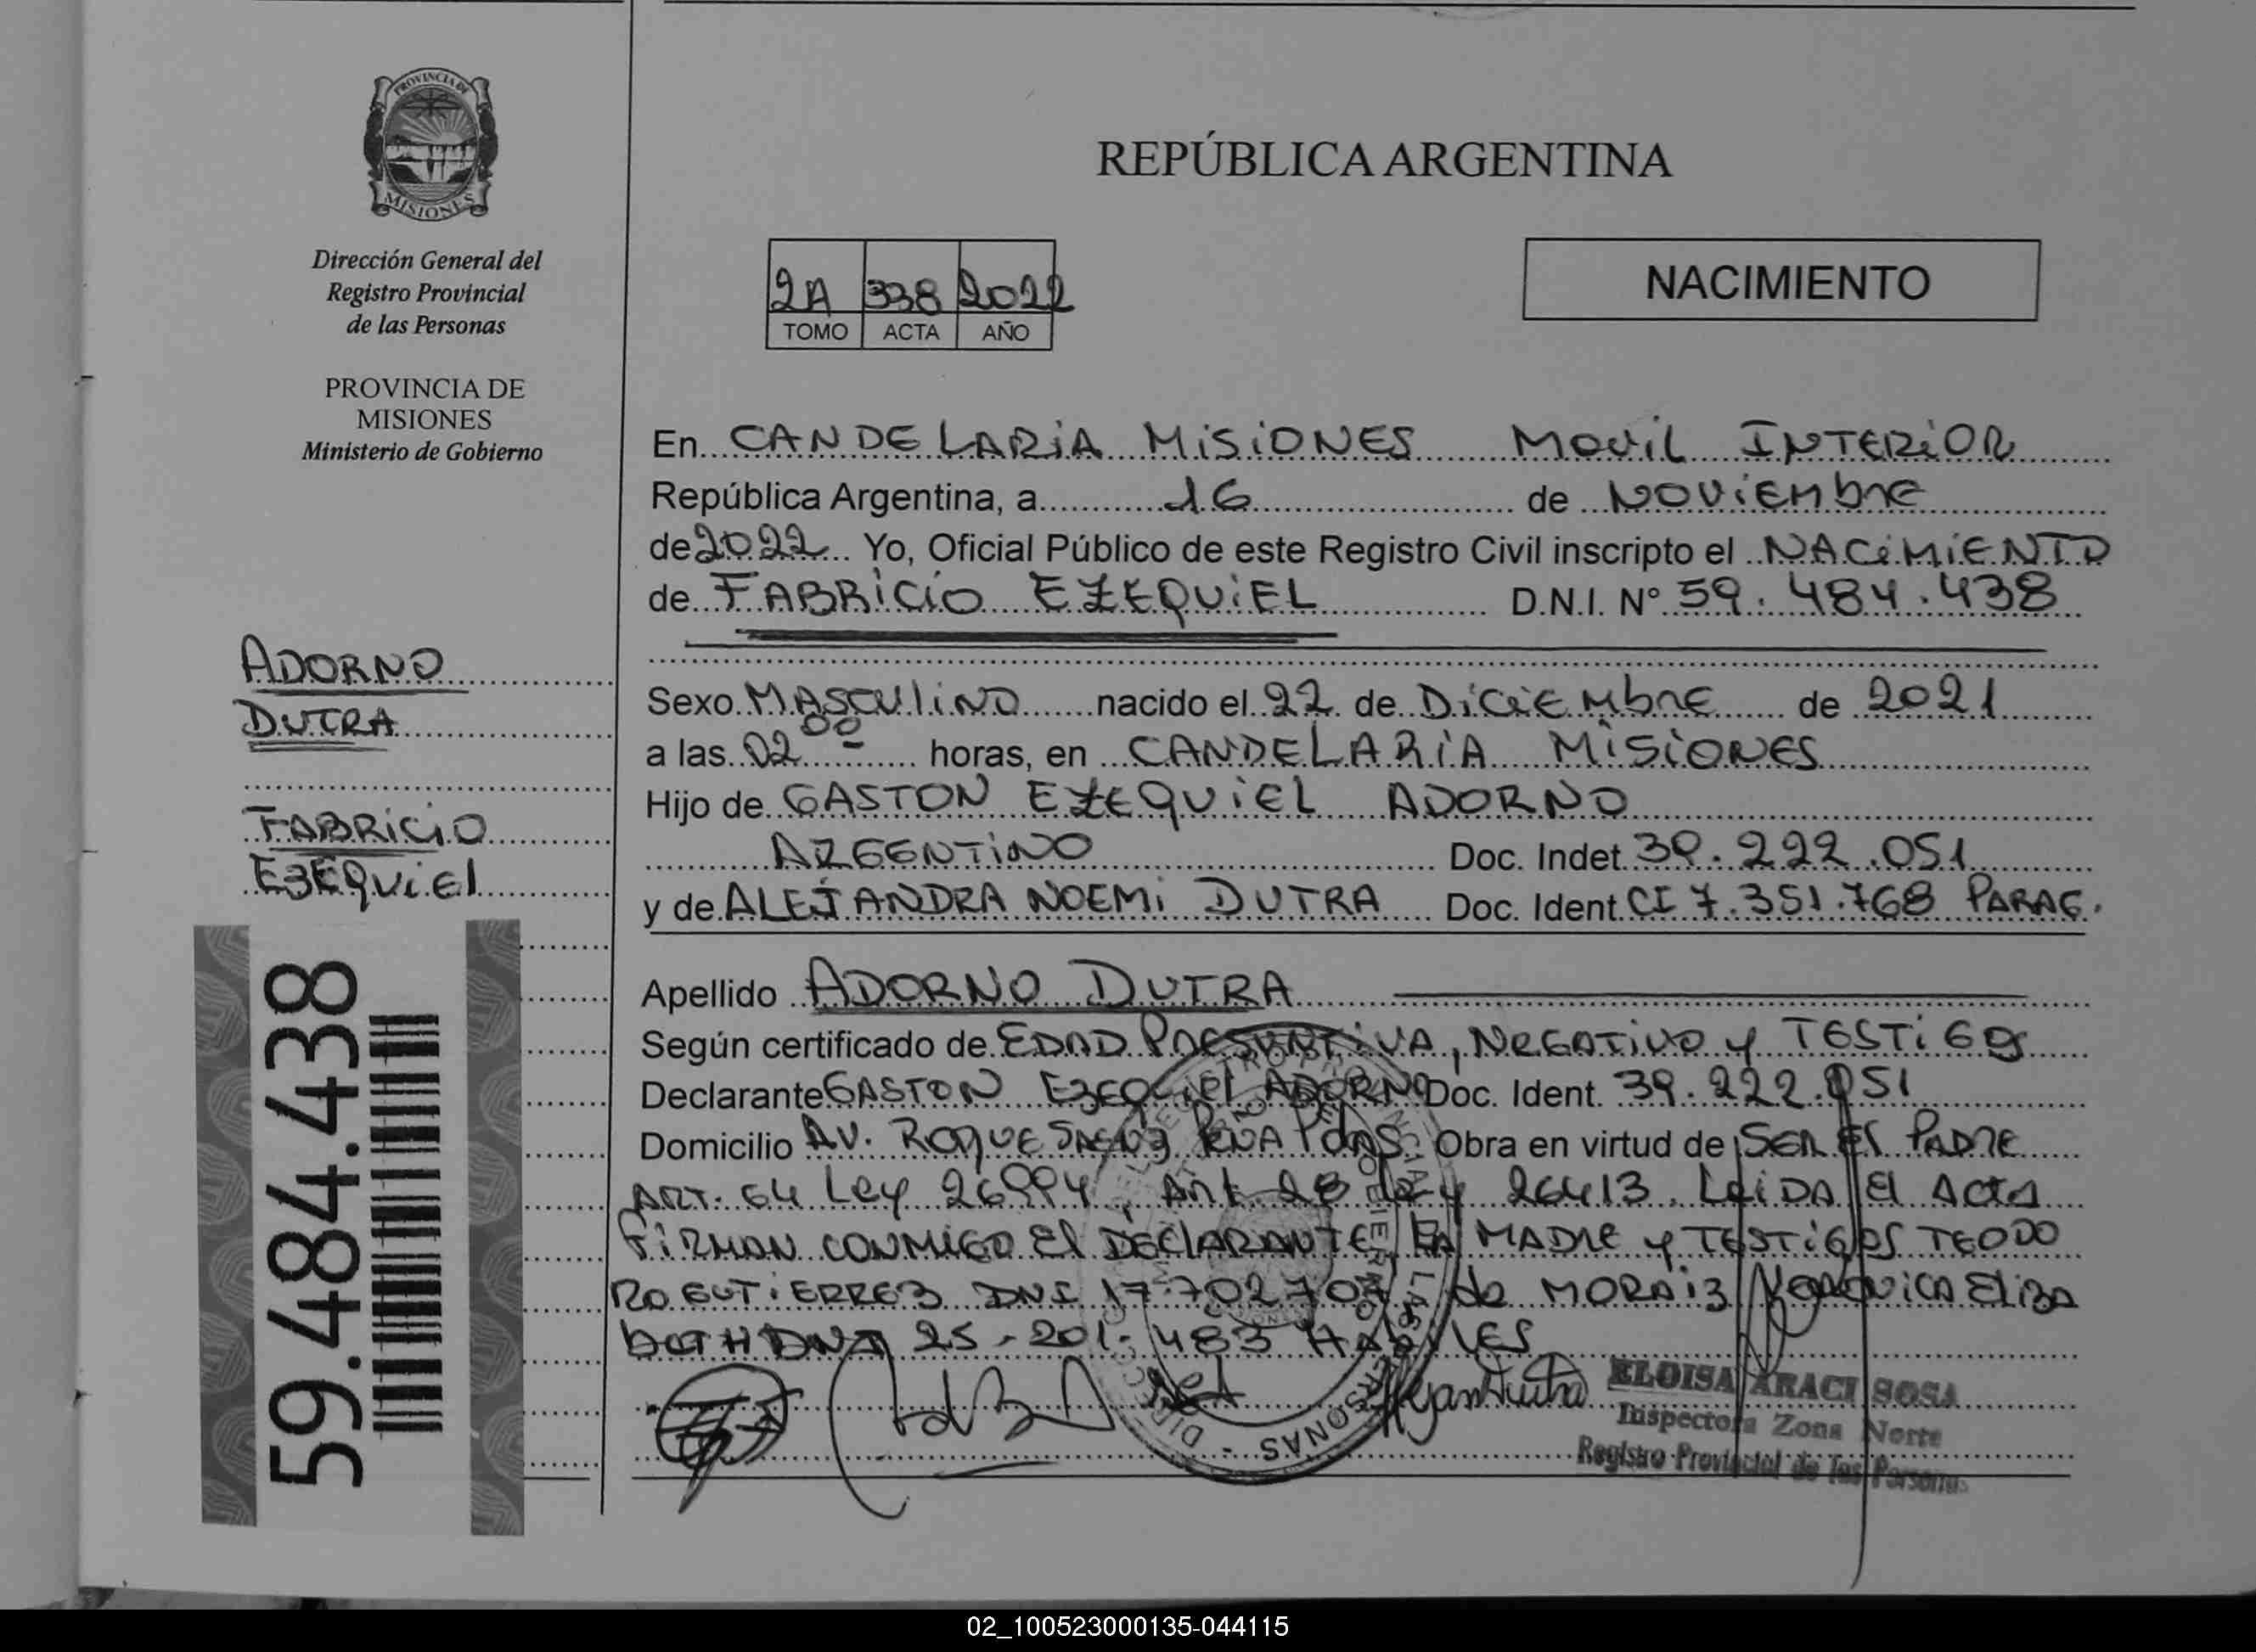 PROVINCIA DE
MISIONES
Dirección General del
Registro Provincial
de las Personas
PROVINCIA DE
MISIONES
Ministerio de Gobierno
ADORNO
DUTRA
FABRICIO
EZEQUIEL
59.484.438
REPÚBLICA ARGENTINA
2A 338 2022
TOMO ACTA AÑO
NACIMIENTO
En CANDELARIA MISIONES MOVIL INTERIOR
República Argentina, a 16 de NOVIEMBRE
de 2022 Yo, Oficial Público de este Registro Civil inscripto el NACIMIENTO
de FABRICIO EZEQUIEL D.N.I. N° 59.484.438
Sexo MASCULINO nacido el 22 de DICIEMBRE de 2021
a las 02 00 horas, en CANDELARIA MISIONES
Hijo de GASTON EZEQUIEL ADORNO
ARGENTINO Doc. Indet. 39.222.051
y de ALEJANDRA NOEMI DUTRA Doc. Ident. CI 7.351.768 PARAG.
Apellido ADORNO DUTRA
Según certificado de EDAD PRESUNTIVA, NEGATIVO y TESTIGOS
Declarante GASTON EZEQUIEL ADORNO Doc. Ident. 39.222.051
Domicilio AV. ROQUE SAENZ PEÑA Pdas. Obra en virtud de SER EL PADRE
ART. 64 Ley 26994, Art. 28 Ley 26413. LEIDA El ACTA
FIRMAN CONMIGO El DECLARANTE, LA MADRE y TESTIGOS TEODO
RO GUTIERREZ DNI 17.702.707 de MORAIZ VERONICA ELIZA
BETH DNI 25.201.483 HABILES
ELOISA ARACI SOSA
Inspectora Zona Norte
Registro Provincial de las Personas
02_100523000135-044115